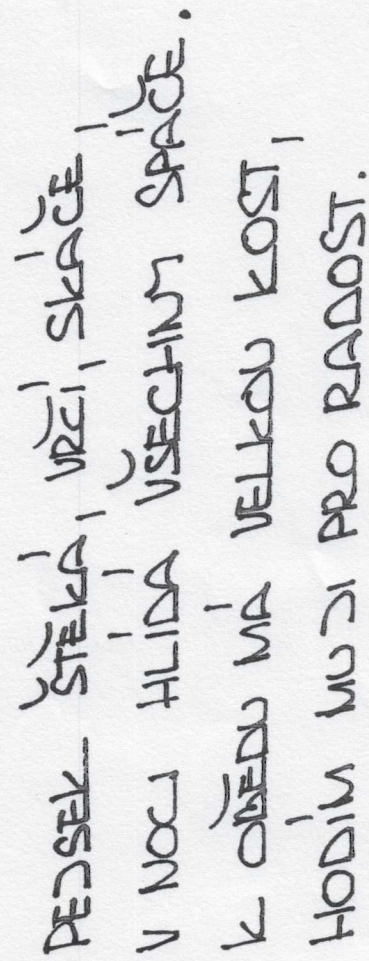 PEJSEK ŠTĚKÁ, VRČÍ, SKÁČE,
V NOCI HLÍDÁ VŠECHNY SPÁČE.
K OBĚDU MÁ VELKOU KOST,
HODÍM MU JI PRO RADOST.